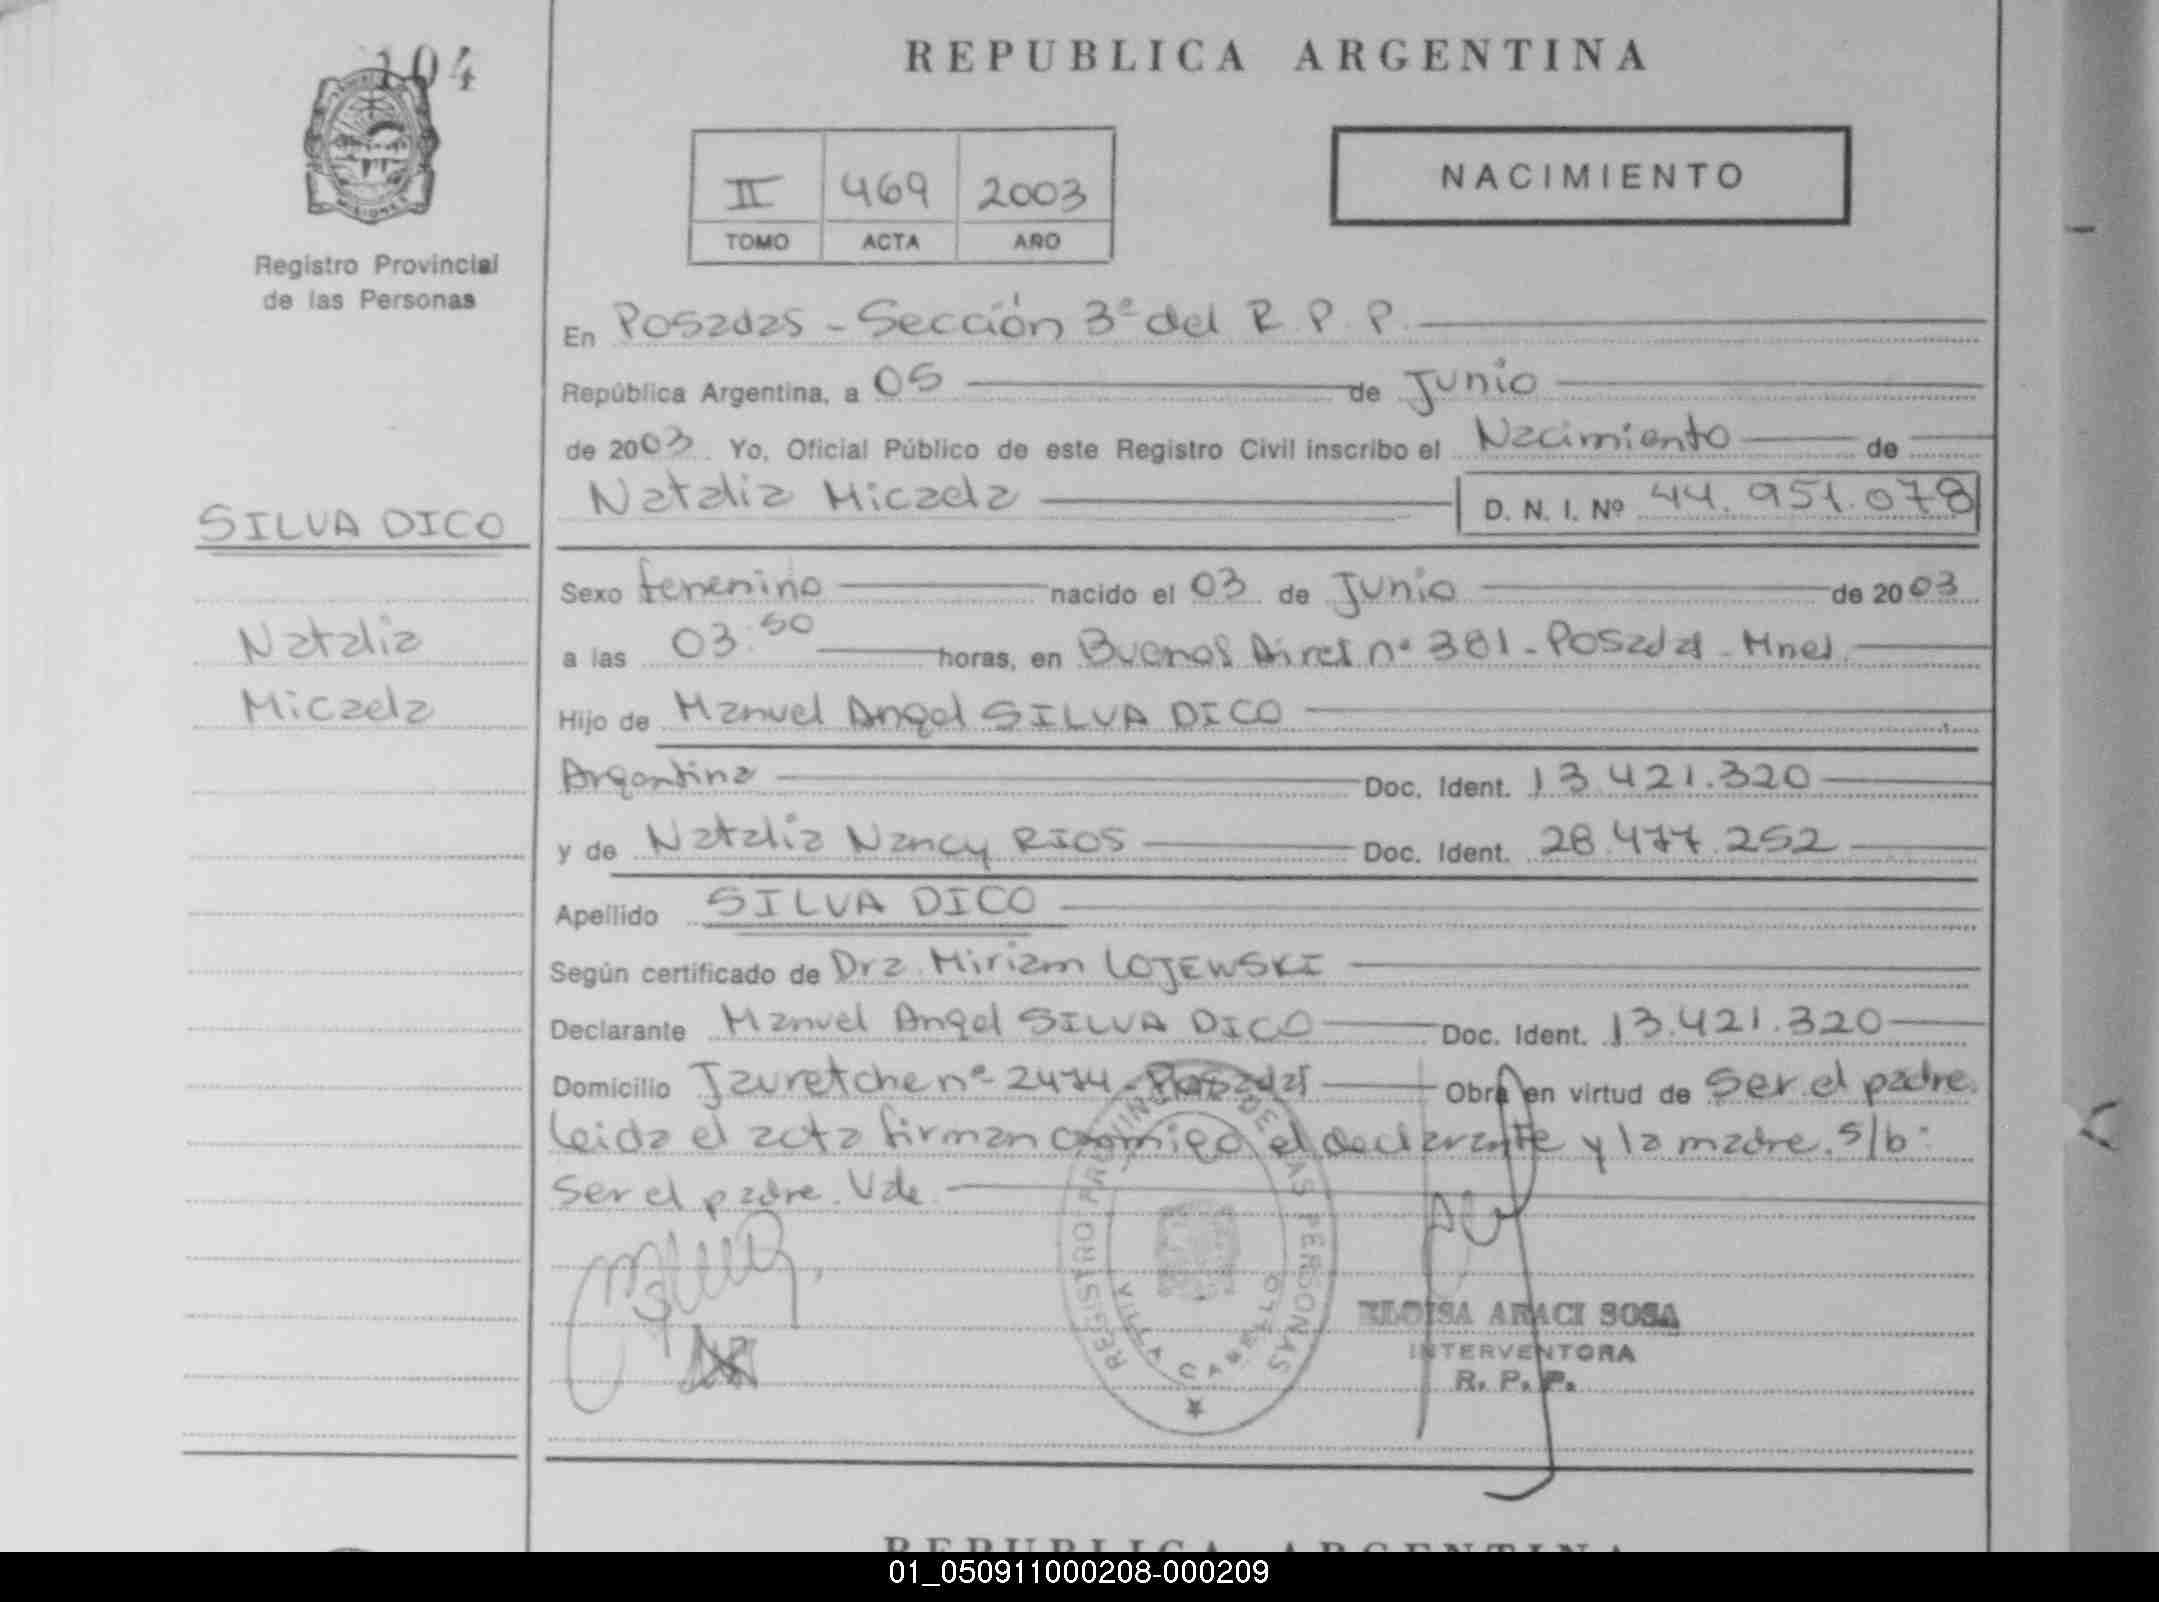 104
REPUBLICA ARGENTINA
NACIMIENTO
II 469 2003
TOMO ACTA AÑO
MISIONES
Registro Provincial
de las Personas
En Posadas - Sección 3ª del R. P. P.
República Argentina, a 05 de Junio
de 2003. Yo, Oficial Público de este Registro Civil inscribo el Nacimiento de
Natalia Micaela D. N. I. Nº 44.951.078
SILVA DICO
Natalia
Micaela
Sexo femenino nacido el 03 de Junio de 2003
a las 03:50 horas, en Buenos Aires nº 381 - Posadas - Mnes
Hijo de Manuel Angel SILVA DICO
Argentina Doc. Ident. 13.421.320
y de Natalia Nancy RIOS Doc. Ident. 28.477.252
Apellido SILVA DICO
Según certificado de Dra. Miriam LOJEWSKI
Declarante Manuel Angel SILVA DICO Doc. Ident. 13.421.320
Domicilio Jauretche nº 2474 - Posadas Obra en virtud de Ser el padre.
Leida el acta firman conmigo el declarante y la madre. s/b:
Ser el padre. Vale.
REGISTRO PROVINCIAL DE LAS PERSONAS
VILLA CABELLO
ELOISA ARACI SOSA
INTERVENTORA
R. P. P.
REPUBLICA ARGENTINA
01_050911000208-000209